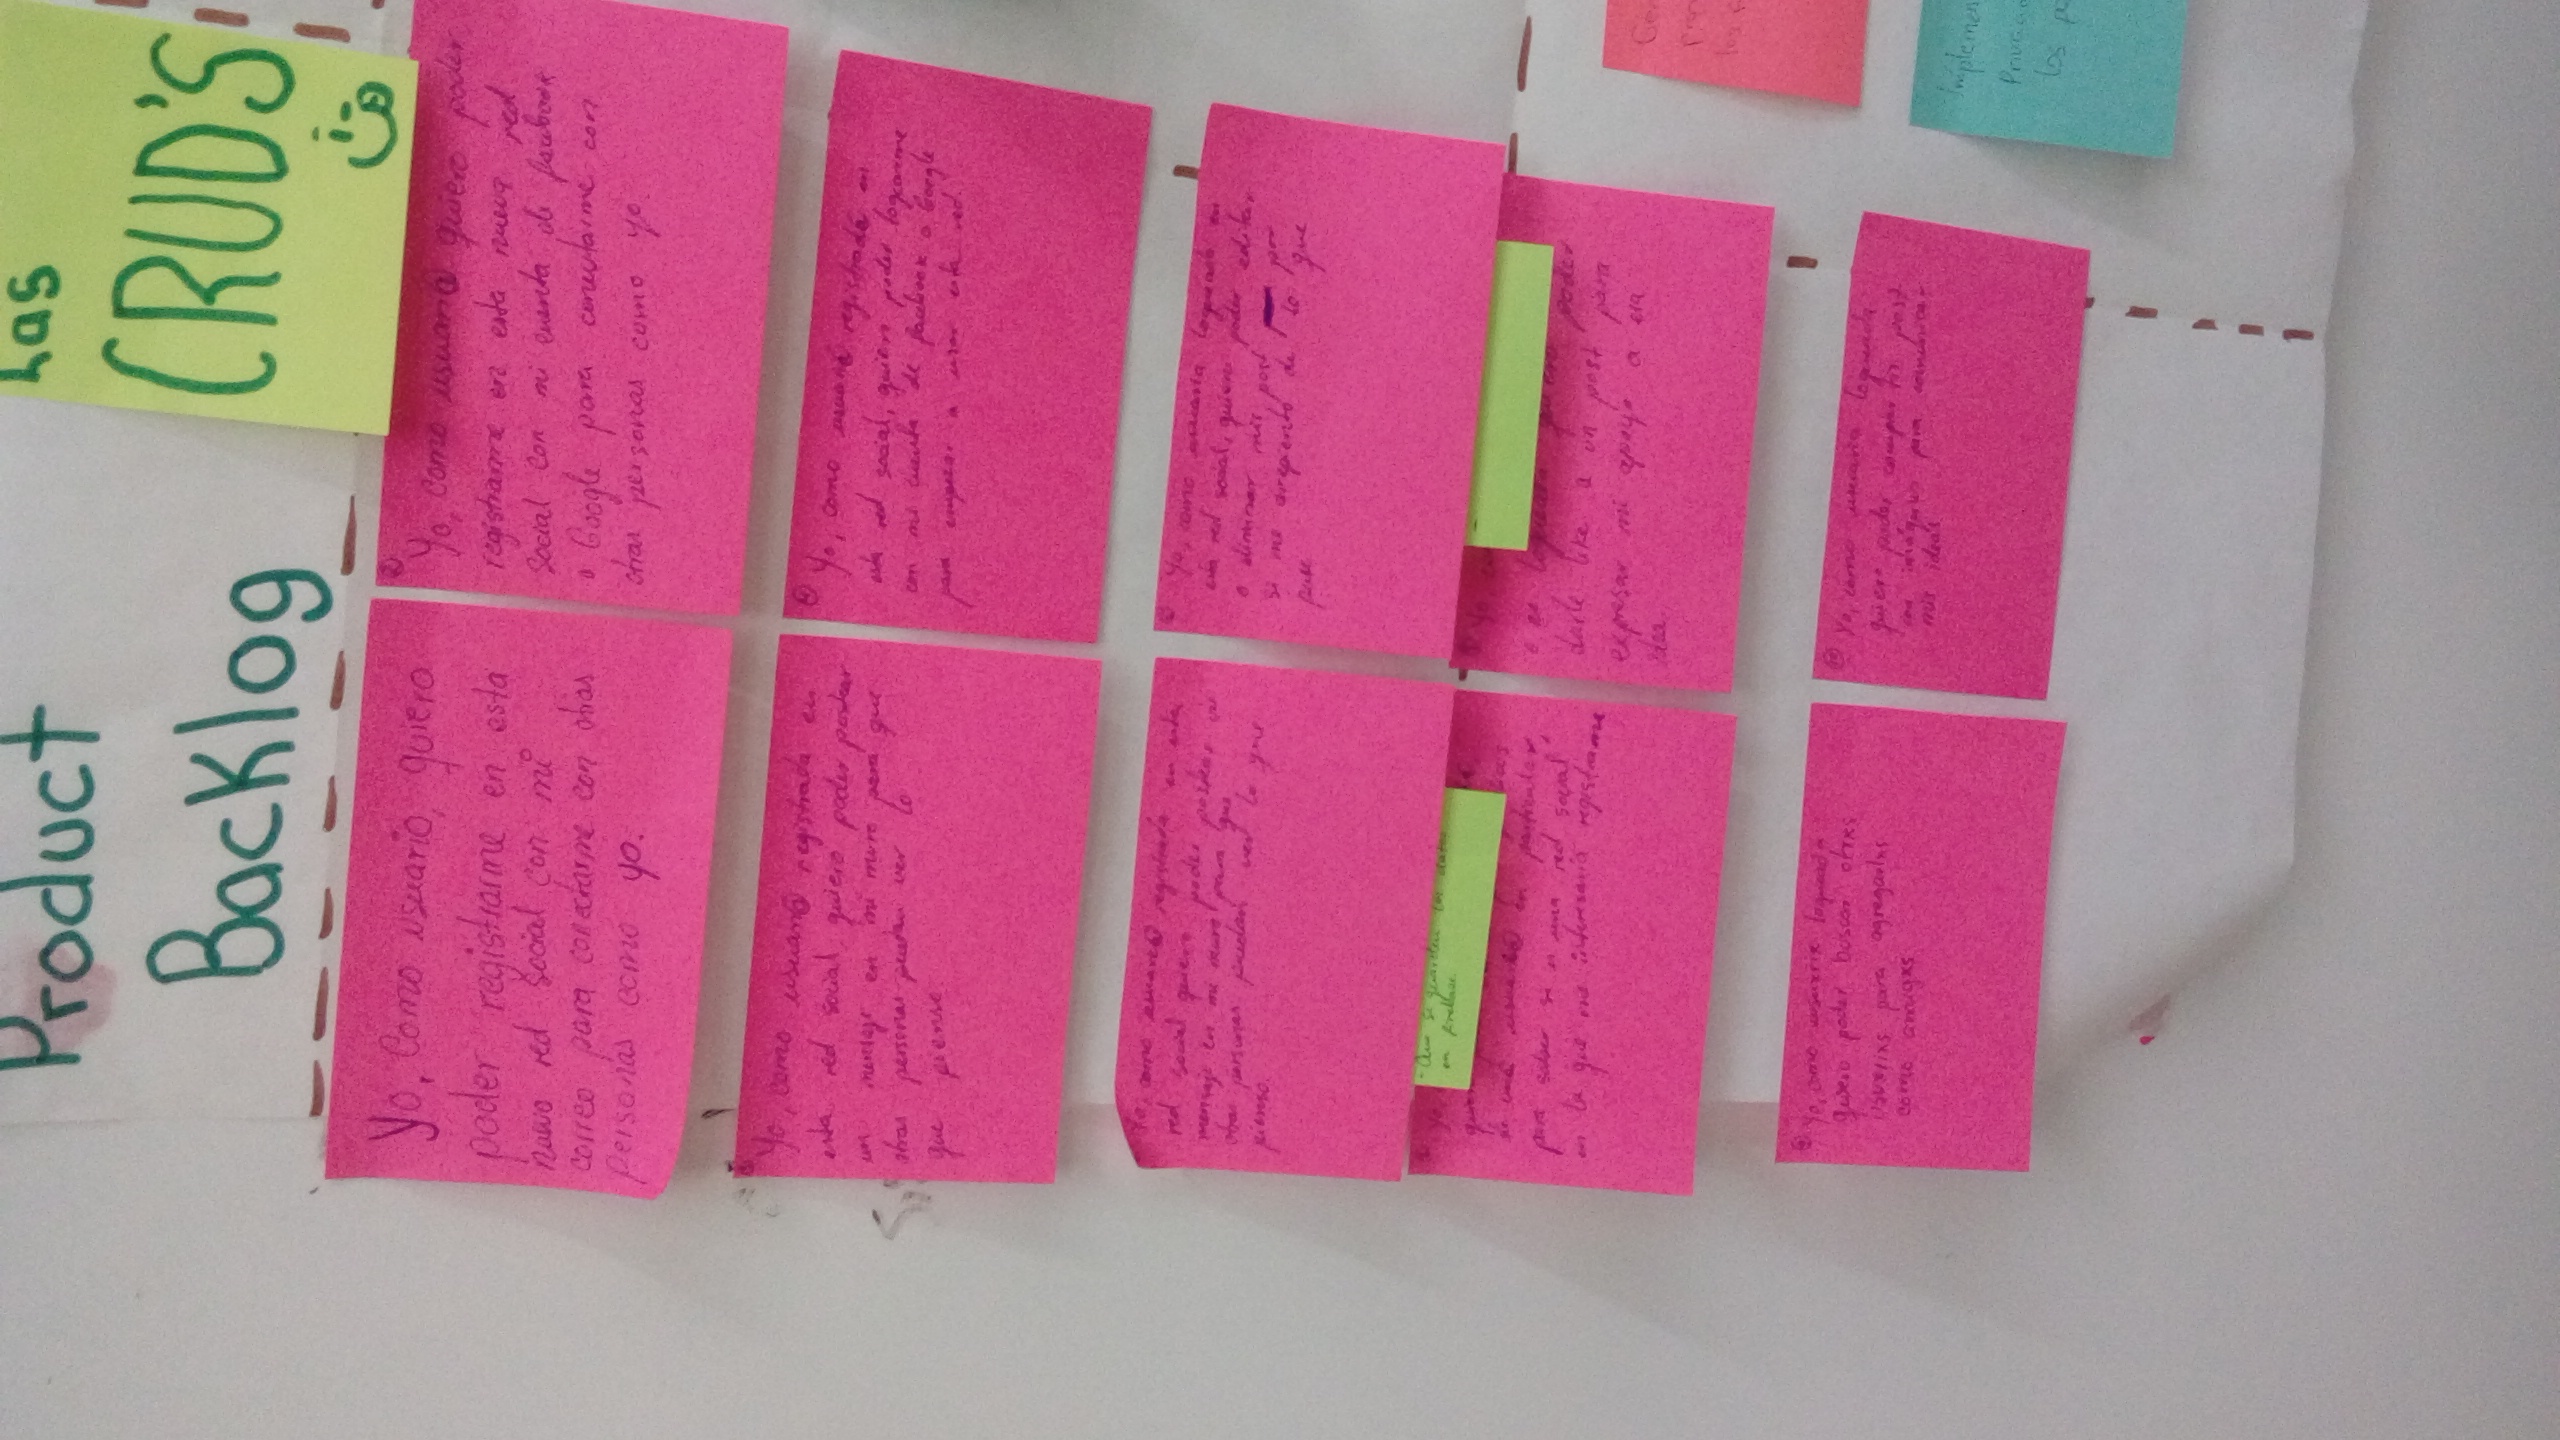 Product
Backlog
Las
CRUD'S
Yo, Como usuario, quiero
poder registrarme en esta
nuevo red social con mi
correo para conectarme con otras
personas como yo.
Yo, como usuari@ quiero poder
registrarme en esta nueva red
social con mi cuenta de facebook
o Google para conectarme con
otras personas como yo
Yo, como usuari@ registrada en
esta red social, quiero poder postear
un mensaje en mi muro para que
otras personas puedan ver lo
que pienso
④ Yo, como usuari@ registrada en
esta red social, quiero poder loguearme
con mi cuenta de facebook o Google
para empezar a usar esta red.
Yo, como usuari@ registrada en esta
red social quiero poder postear un
mensaje en mi muro para que
otras personas puedan ver lo que
pienso.
Yo, como usuaria logueada en
esta red social, quiero poder editar
o eliminar mis post por
si me arrepiento de lo que
puse
- Que se guarden los datos
en firebase.
Yo,
de una usuari@ en particular,
para saber si es una red social
en la que me interesaria registrarme
Yo
logueada poder
darle like a un post para
expresar mi apoyo a esa
idea.
⑨ Yo, como usuarix logueada
quiero poder buscar otrxs
usuarixs para agregarlxs
como amigxs
⑩ Yo, como usuaria logueada
quiero poder compartir post
con imágenes para comunicar
mis ideas
Implemen
los